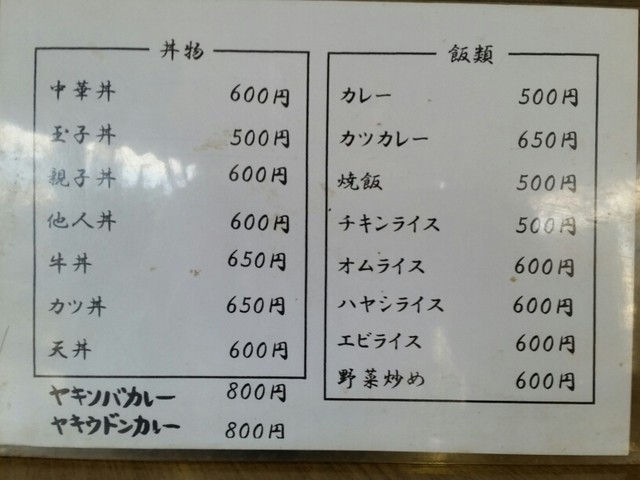 丼物
中華丼 600円
玉子丼 500円
親子丼 600円
他人丼 600円
牛丼 650円
カツ丼 650円
天丼 600円
ヤキソバカレー 800円
ヤキウドンカレー 800円
飯類
カレー 500円
カツカレー 650円
焼飯 500円
チキンライス 500円
オムライス 600円
ハヤシライス 600円
エビライス 600円
野菜炒め 600円